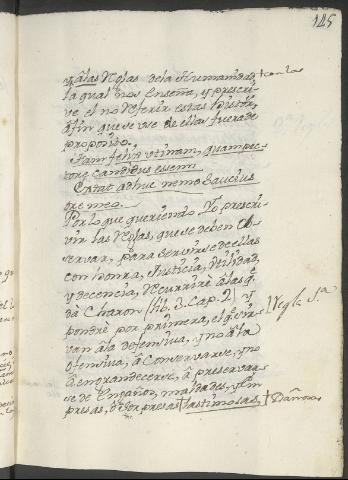 145
y â las Reglas de la Humanidad, † con la
la qual nos Enseña, y prescri-
ve el no Referir estas histor.
âfin que se use de ellas fuera de
proposito.
Tam felix utinam, quam pec-
tore candidus essem
Extat adhuc nemo Saucius
ore meo.
Por lo que queriendo Yo prescri-
vir las Reglas, que se deben Ob-
servar, para servirse de ellas
con honra, Justicia, Utilidad,
y decencia, Recurriré â las q.^e
dâ Charon [lib. 3. Cap. 2] y
pondré por primera, el q.^e sir- Regla 1.^a
van â la defensiva, y no â la
ofensiva, â Conservarse, y no
â engrandecerse, â preservar-
se de Engaños, maldades, y Em-
presas, ô sorpresas † lastimosas, † Dañosas